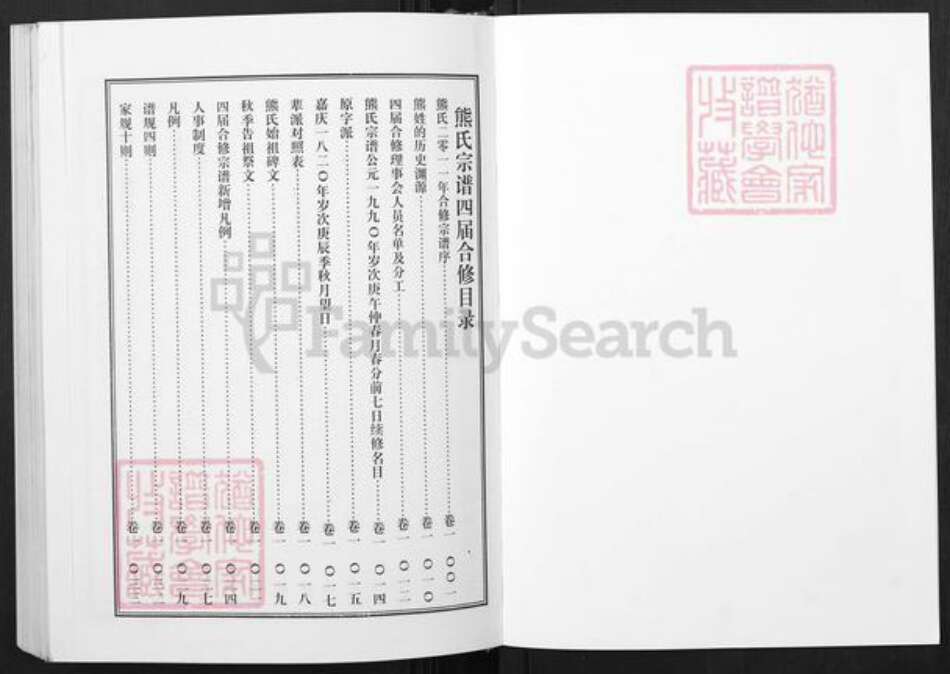 熊氏宗谱四届合修目录
熊氏二零一一年合修宗谱序 卷一 〇〇一
熊姓的历史渊源 卷一 〇一〇
四届合修理事会人员名单及分工 卷一 〇一二
熊氏宗谱公元一九九〇年岁次庚午仲春月春分前七日续修名目 卷一 〇一四
原字派 卷一 〇一五
嘉庆一八二〇年岁次庚辰季秋月望日 卷一 〇一七
辈派对照表 卷一 〇一八
熊氏始祖碑文 卷一 〇一九
秋季告祖祭文 卷一
四届合修宗谱新增凡例 卷一
人事制度 卷一
凡例 卷一
谱规四则 卷一
家规十则 卷一
FamilySearch